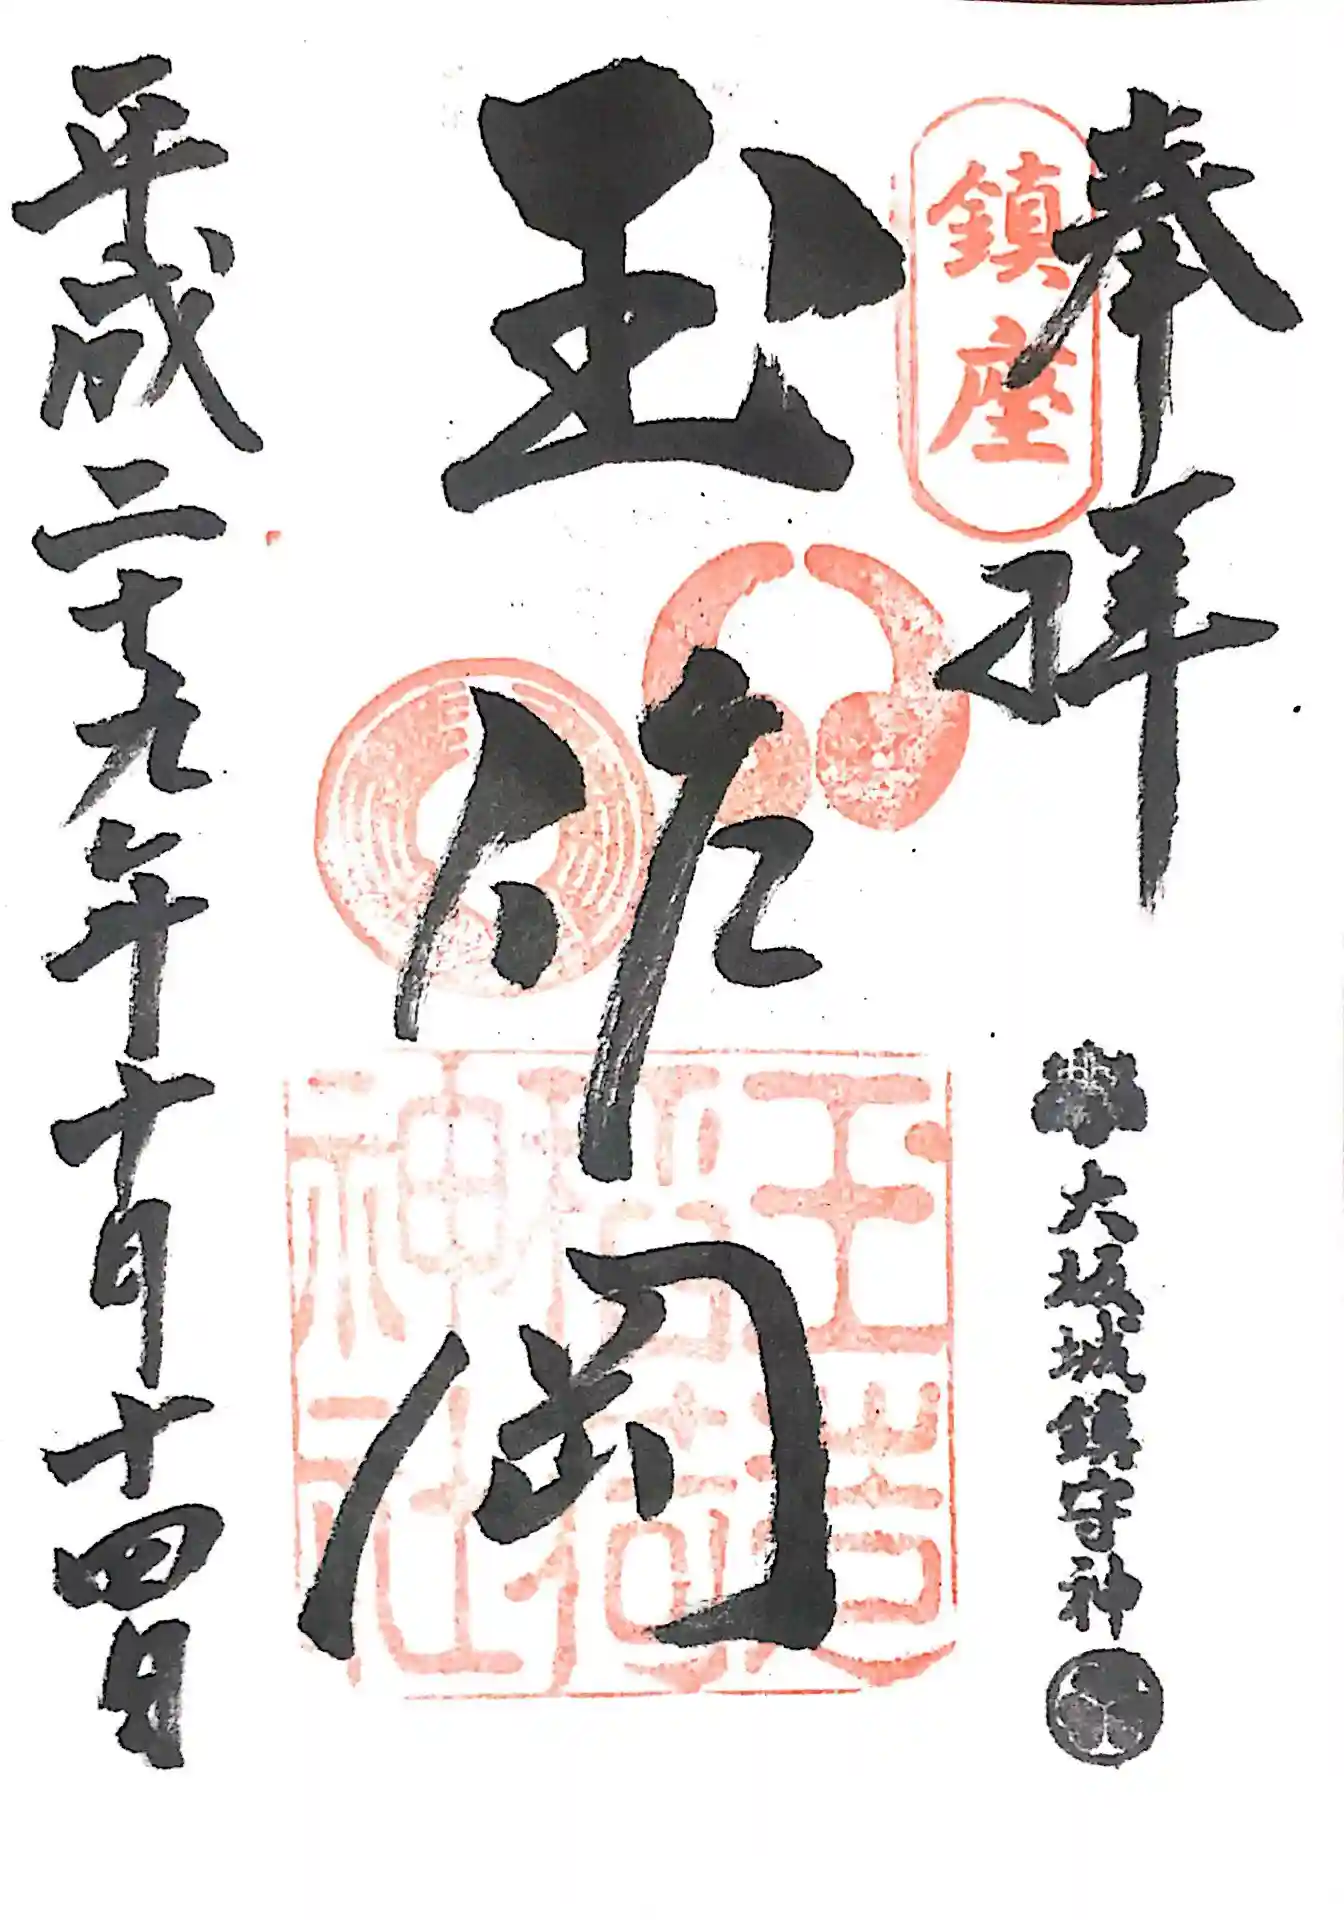 奉拝
鎮座
大坂城鎮守神
玉作岡
玉造
稲荷
神社
平成二十九年十月十四日